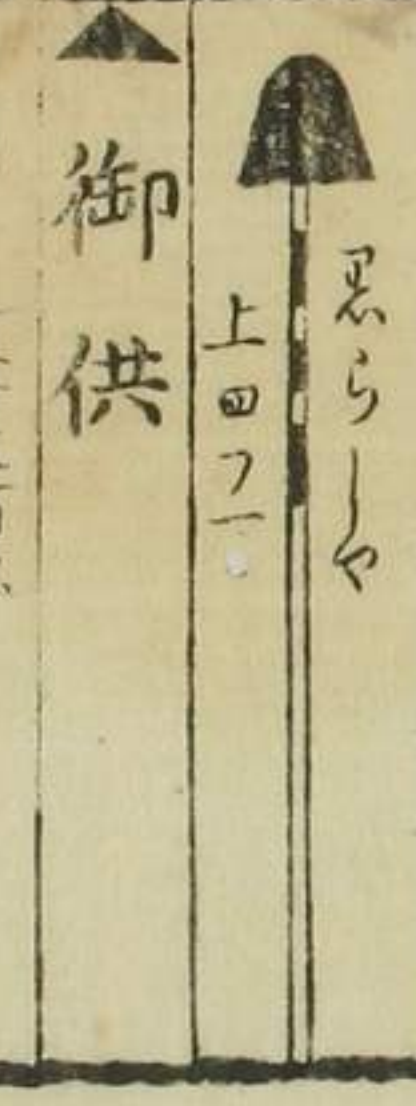 黒らしや
上田フ一
御供